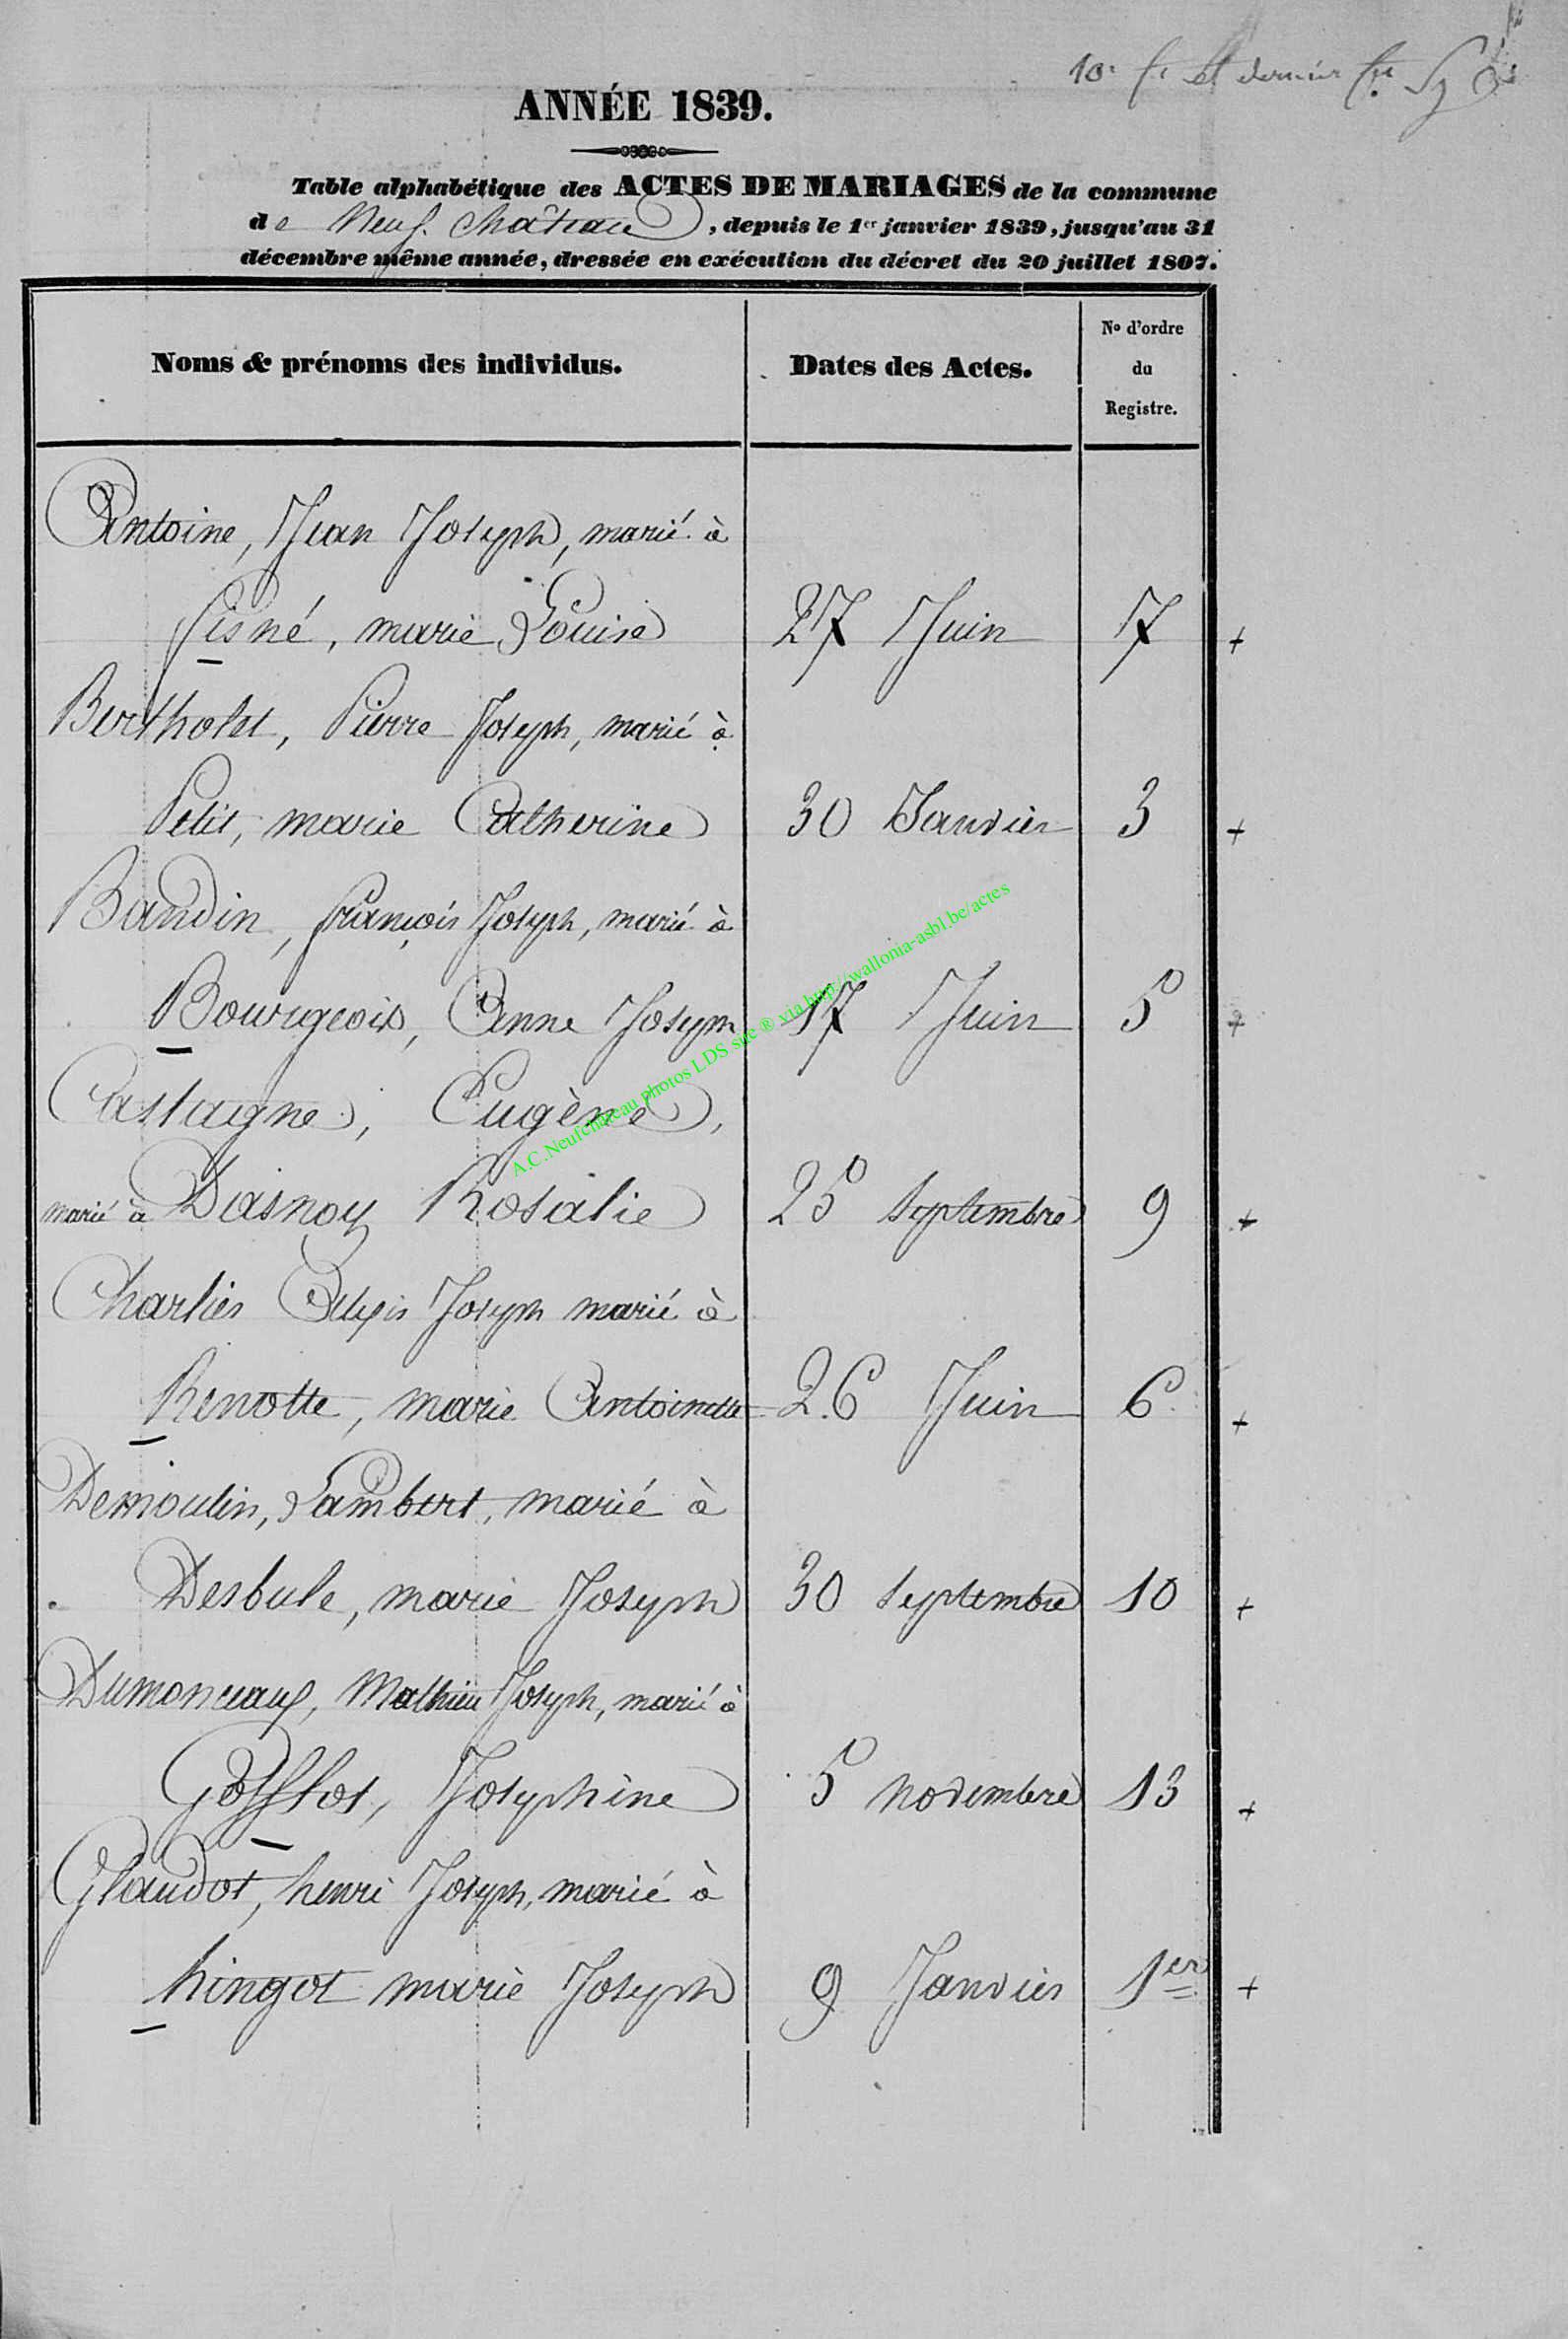 10e f. et dernier
ANNÉE 1839.
Table alphabétique des ACTES DE MARIAGES de la commune
de Neufchâteau, depuis le 1er janvier 1839, jusqu'au 31
décembre même année, dressée en exécution du décret du 20 juillet 1807.
Noms & prénoms des individus. Dates des Actes. No d'ordre
du
Registre.
Antoine, Jean Joseph, marié à
marie Louise 27 Juin 7 +
Bertholet, Pierre Joseph, marié à
Petit, marie Catherine 30 Janvier 3 +
Baudin, françois Joseph, marié à
Bourgeois, Anne Joseph 17 Juin 5 +
Castagne, Eugène,
marié à Dasnoy Rosalie 25 Septembre 9 +
Charlier Alexis Joseph marié à
Renotte, marie Antoinette 26 Juin 6 +
Demoulin, Lambert, marié à
Desbule, marie Joseph 30 Septembre 10 +
Dumonceaux, Mathieu Joseph, marié à
Gofflot, Josephine 5 novembre 13 +
Glaudot, henri Joseph, marié à
hingot marie Joseph 9 Janvier 1er +
A.C.Neufchâteau photos LDS site ® via http://wallonia-asbl.be/actes